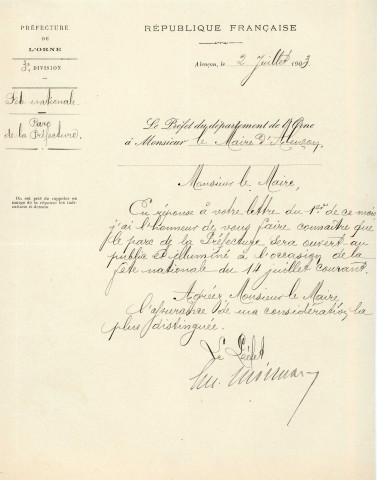 PRÉFECTURE
DE
L'ORNE
3e DIVISION
Fête nationale
Parc
de la Préfecture.
On est prié de rappeler en
marge de la réponse les indications
ci-dessus.
RÉPUBLIQUE FRANÇAISE
Alençon, le 2 Juillet 1903.
Le Préfet du département de l'Orne
à Monsieur le Maire d'Alençon
Monsieur le Maire,
En réponse à votre lettre du 1er de ce mois
j'ai l'honneur de vous faire connaître que
le parc de la Préfecture sera ouvert au
public et illuminé à l'occasion de la
fête nationale du 14 juillet courant.
Agréez, Monsieur le Maire,
l'assurance de ma considération la
plus distinguée.
Le Préfet